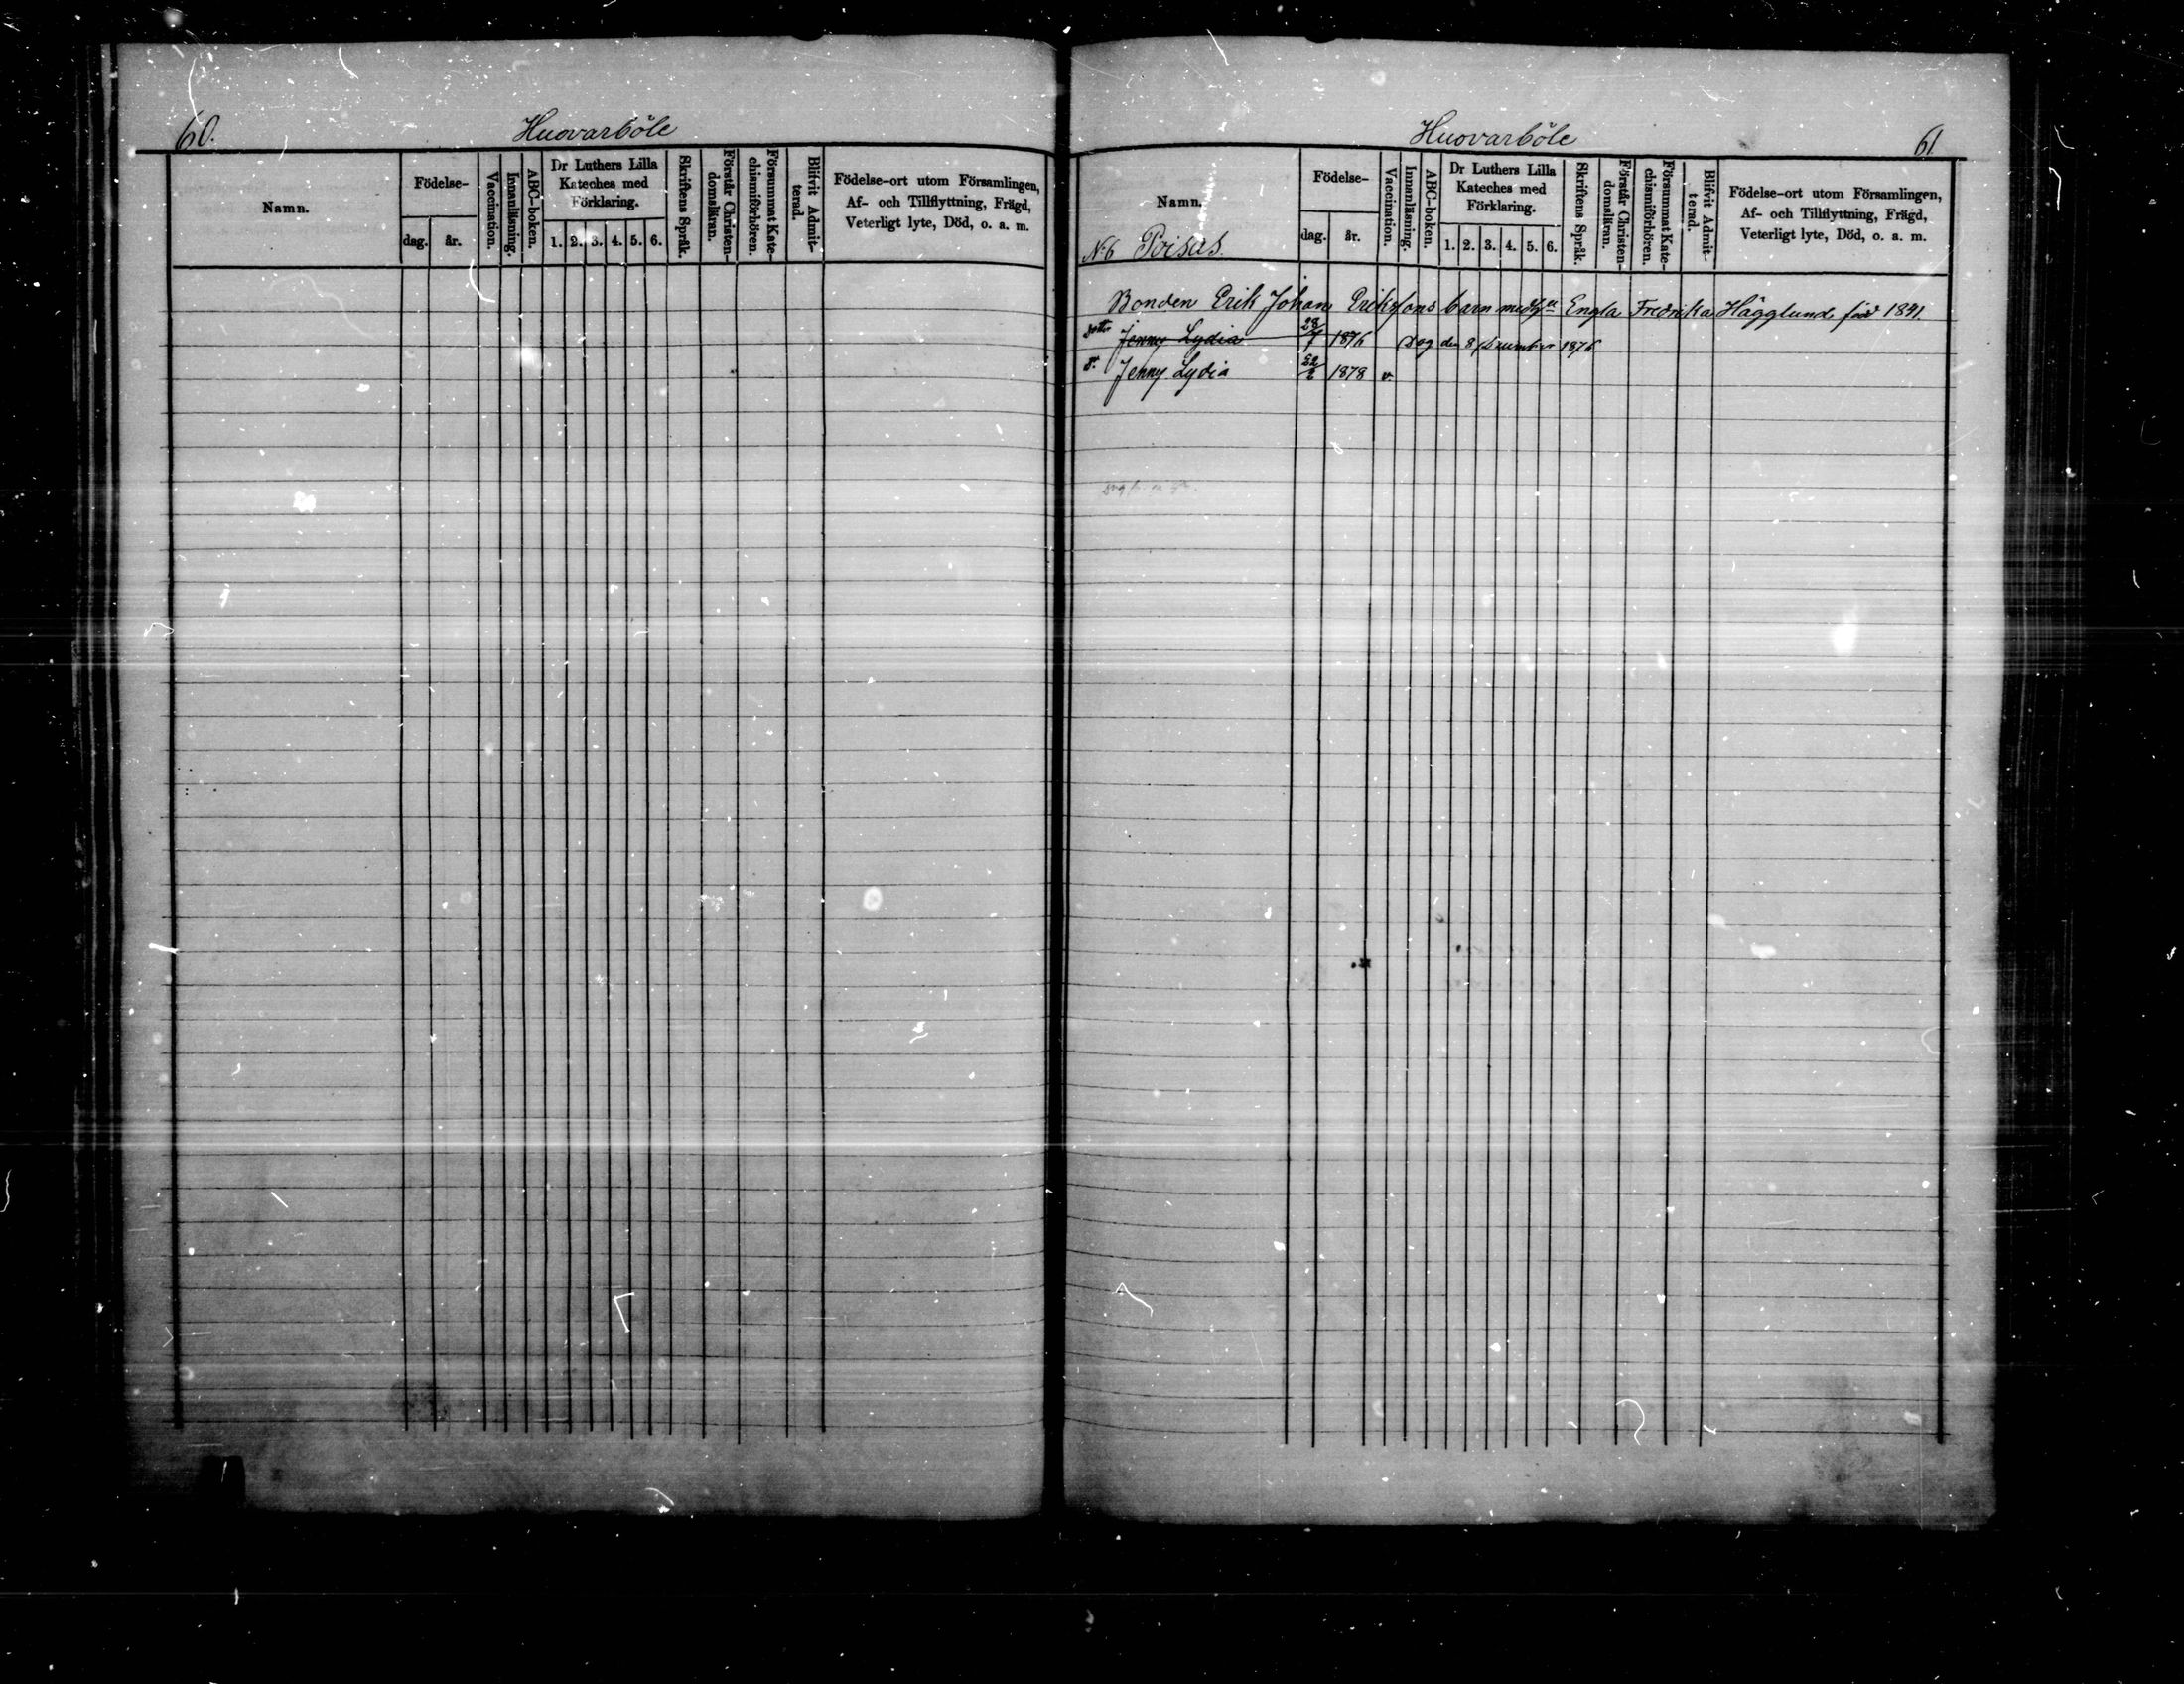 60.
Huovarböle
Namn.
Födelse-
dag. år.
Vaccination.
Innanläsning.
ABC-boken.
Dr Luthers Lilla
Kateches med
Förklaring.
1. 2. 3. 4. 5. 6.
Skriftens Språk.
Förstår Christen-
domsläran.
Försummat Kate-
chismiförhören.
Blifvit Admit-
terad.
Födelse-ort utom Församlingen,
Af- och Tillflyttning, Frägd,
Veterligt lyte, Död, o. a. m.
Huovarböle
61.
Namn.
No 6 Poisus.
Födelse-
dag. år.
Vaccination.
Innanläsning.
ABC-boken.
Dr Luthers Lilla
Kateches med
Förklaring.
1. 2. 3. 4. 5. 6.
Skriftens Språk.
Förstår Christen-
domsläran.
Försummat Kate-
chismiförhören.
Blifvit Admit-
terad.
Födelse-ort utom Församlingen,
Af- och Tillflyttning, Frägd,
Veterligt lyte, Död, o. a. m.
Bonden Erik Johan Eriksons barn med Engla Fredrika Hägglund född 1841.
dotter Jenny Lydia 28/7 1876 Dog den 8 December 1876
d:r Jenny Lydia 22/2 1878 v.